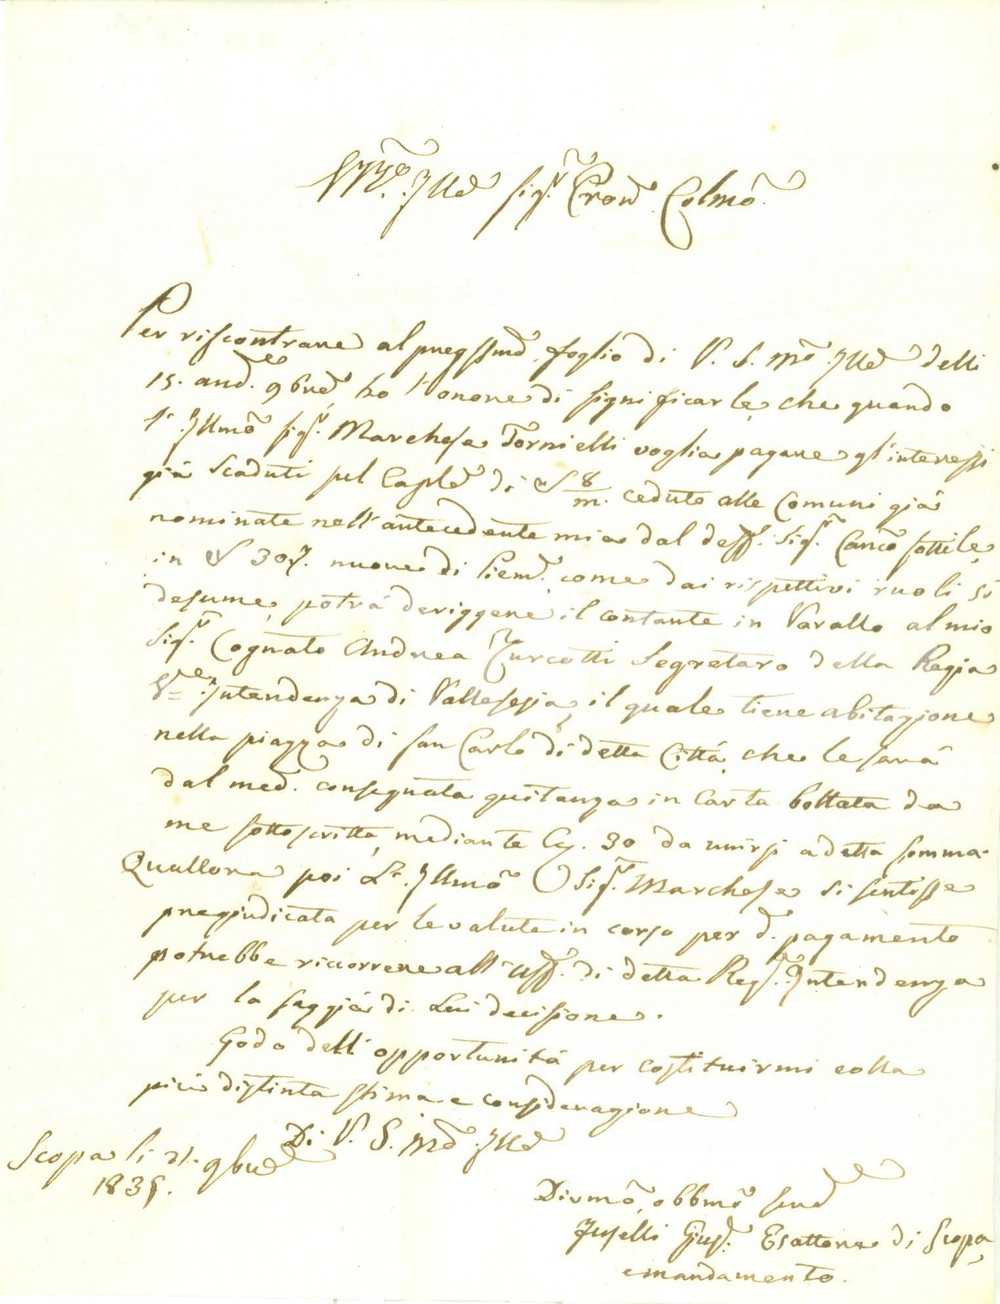 Ill.e Sig.r Pron. Colmo.
Per riscontrare al pregmo. foglio di V. S. Mo. Ille delli
15. and.e 9bre, ho l'onore di significarle, che quando
l'Illmo Sig.r Marchese Tornielli voglia pagare gl'interessi
già scaduti sul Caple di £ 8/m. ceduto alle Comuni già
nominate nell'antecedente mia dal deff. Sig.r Canco Sottile,
in £ 307. nuove di Piem.e come dai rispettivi ruoli si
desume, potrà deriggere il contante in Varallo al mio
Sig.r Cognato Andrea Turcotti Segretaro della Regia
V.e Intendenza di Vallesesia, il quale tiene abitazione
nella piazza di San Carlo di detta Città, che le sarà
dal med. consegnata quitanza in Carta bollata da
me sottoscritta, mediante Cy. 30 da unirsi a detta somma.
Quallora poi L'Illmo Sig.r Marchese si sentisse
pregiudicata per le valute in corso per d.o pagamento
potrebbe riccorrere all'Uff. di detta Reg.a Intendenza
per la saggia di Lui decisione.
Godo dell'opportunità per costituirmi colla
più distinta stima e considerazione
Di V. S. Mo. Ille
Scopa li 21. 9bre
1835.
Divmo, obbmo serv.e
Juselli Gius.e Esattore di Scopa,
e mandamento.